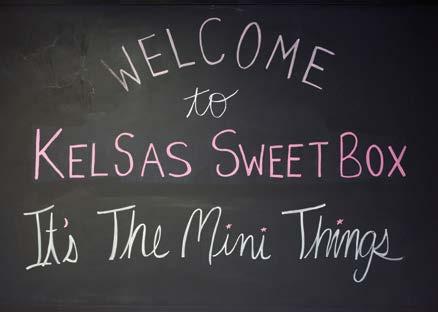 WELCOME
to
KELSAS SWEET BOX
It's The Mini Things